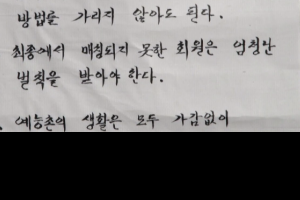 방법을 가리지 않아도 된다.
최종에서 매칭되지 못한 회원은 엄청난
벌칙을 받아야 한다.
예능촌의 생활은 모두 가감없이